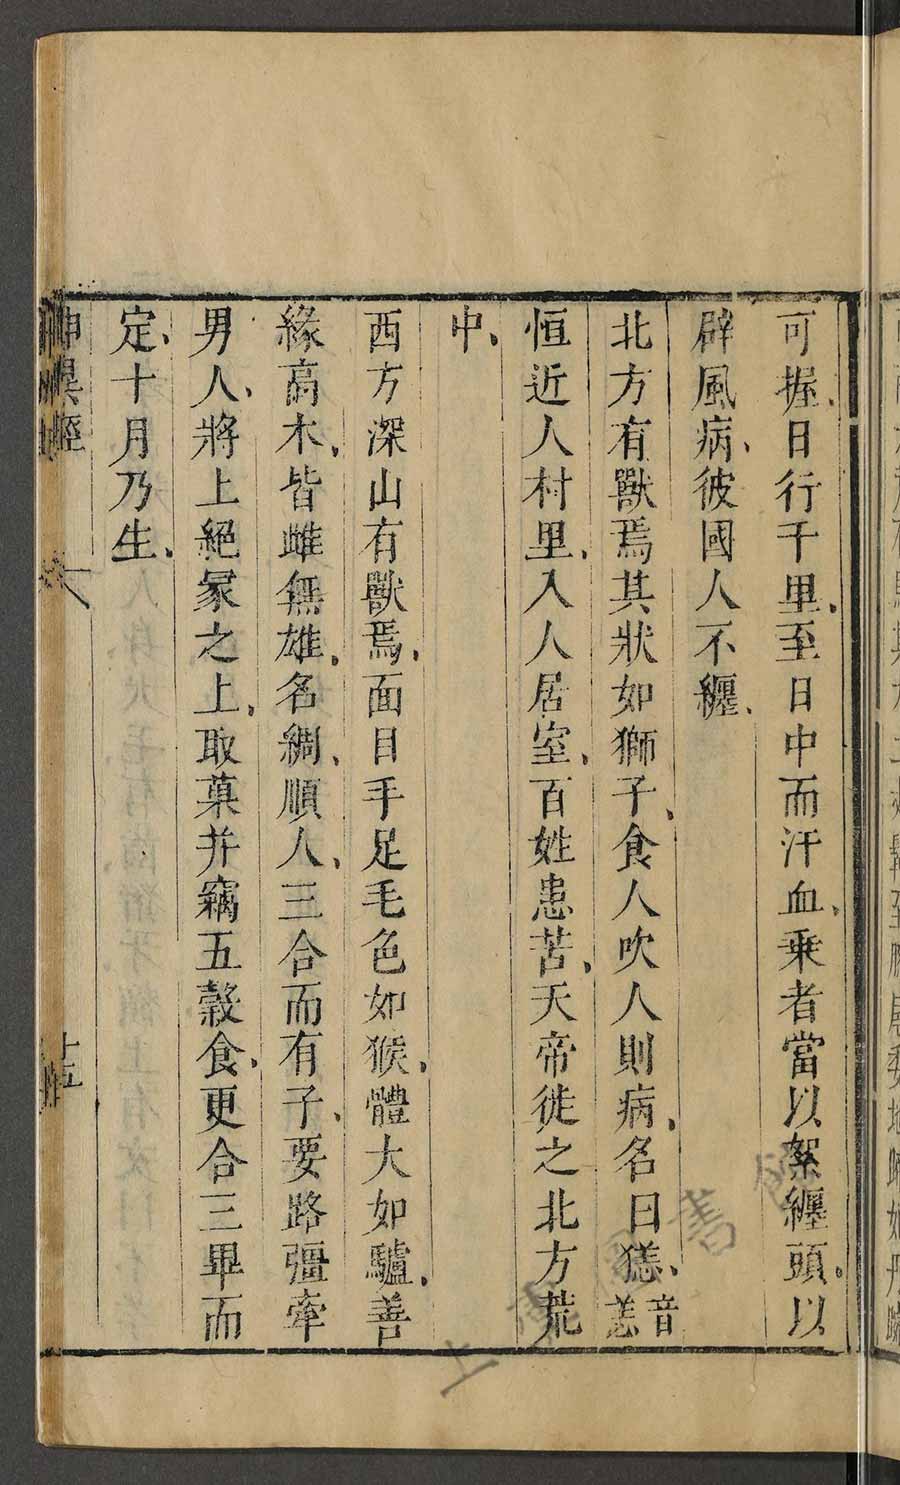 可握、日行千里、至日中而汗血、乘者當以絮纏頭。以
辟風病、彼國人不纏、
北方有獸焉其狀如獅子、食人吹人則病、名曰㺊、音恙
恒近人村里、入人居室、百姓患苦、天帝徙之北方荒
中、
西方深山有獸焉、面目手足毛色如猴、體大如驢、善
緣高木、皆雌無雄、名綢、順人、三合而有子、要路彊牽
男人、將上絕冢之上、取菓并竊五穀食、更合三畢而
定、十月乃生、
神異經
十五